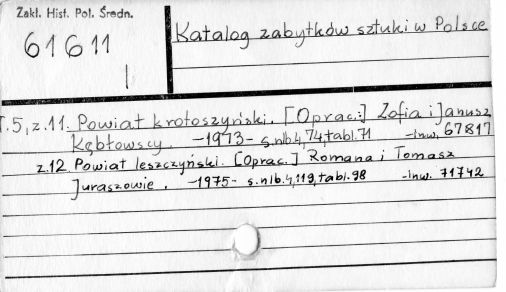 Zakł. Hist. Pol. Średn.
61611
Katalog zabytków sztuki w Polsce
T.5, z.11. Powiat krotoszyński. [Oprac.:] Zofia i Janusz
Kębłowscy. -1973- s.nlb.4,74,tabl.71 -Inw. 67817
z.12. Powiat leszczyński. [Oprac.] Romana i Tomasz
Juraszowie. -1975- s.nlb.4,119,tabl.98 -Inw. 71742